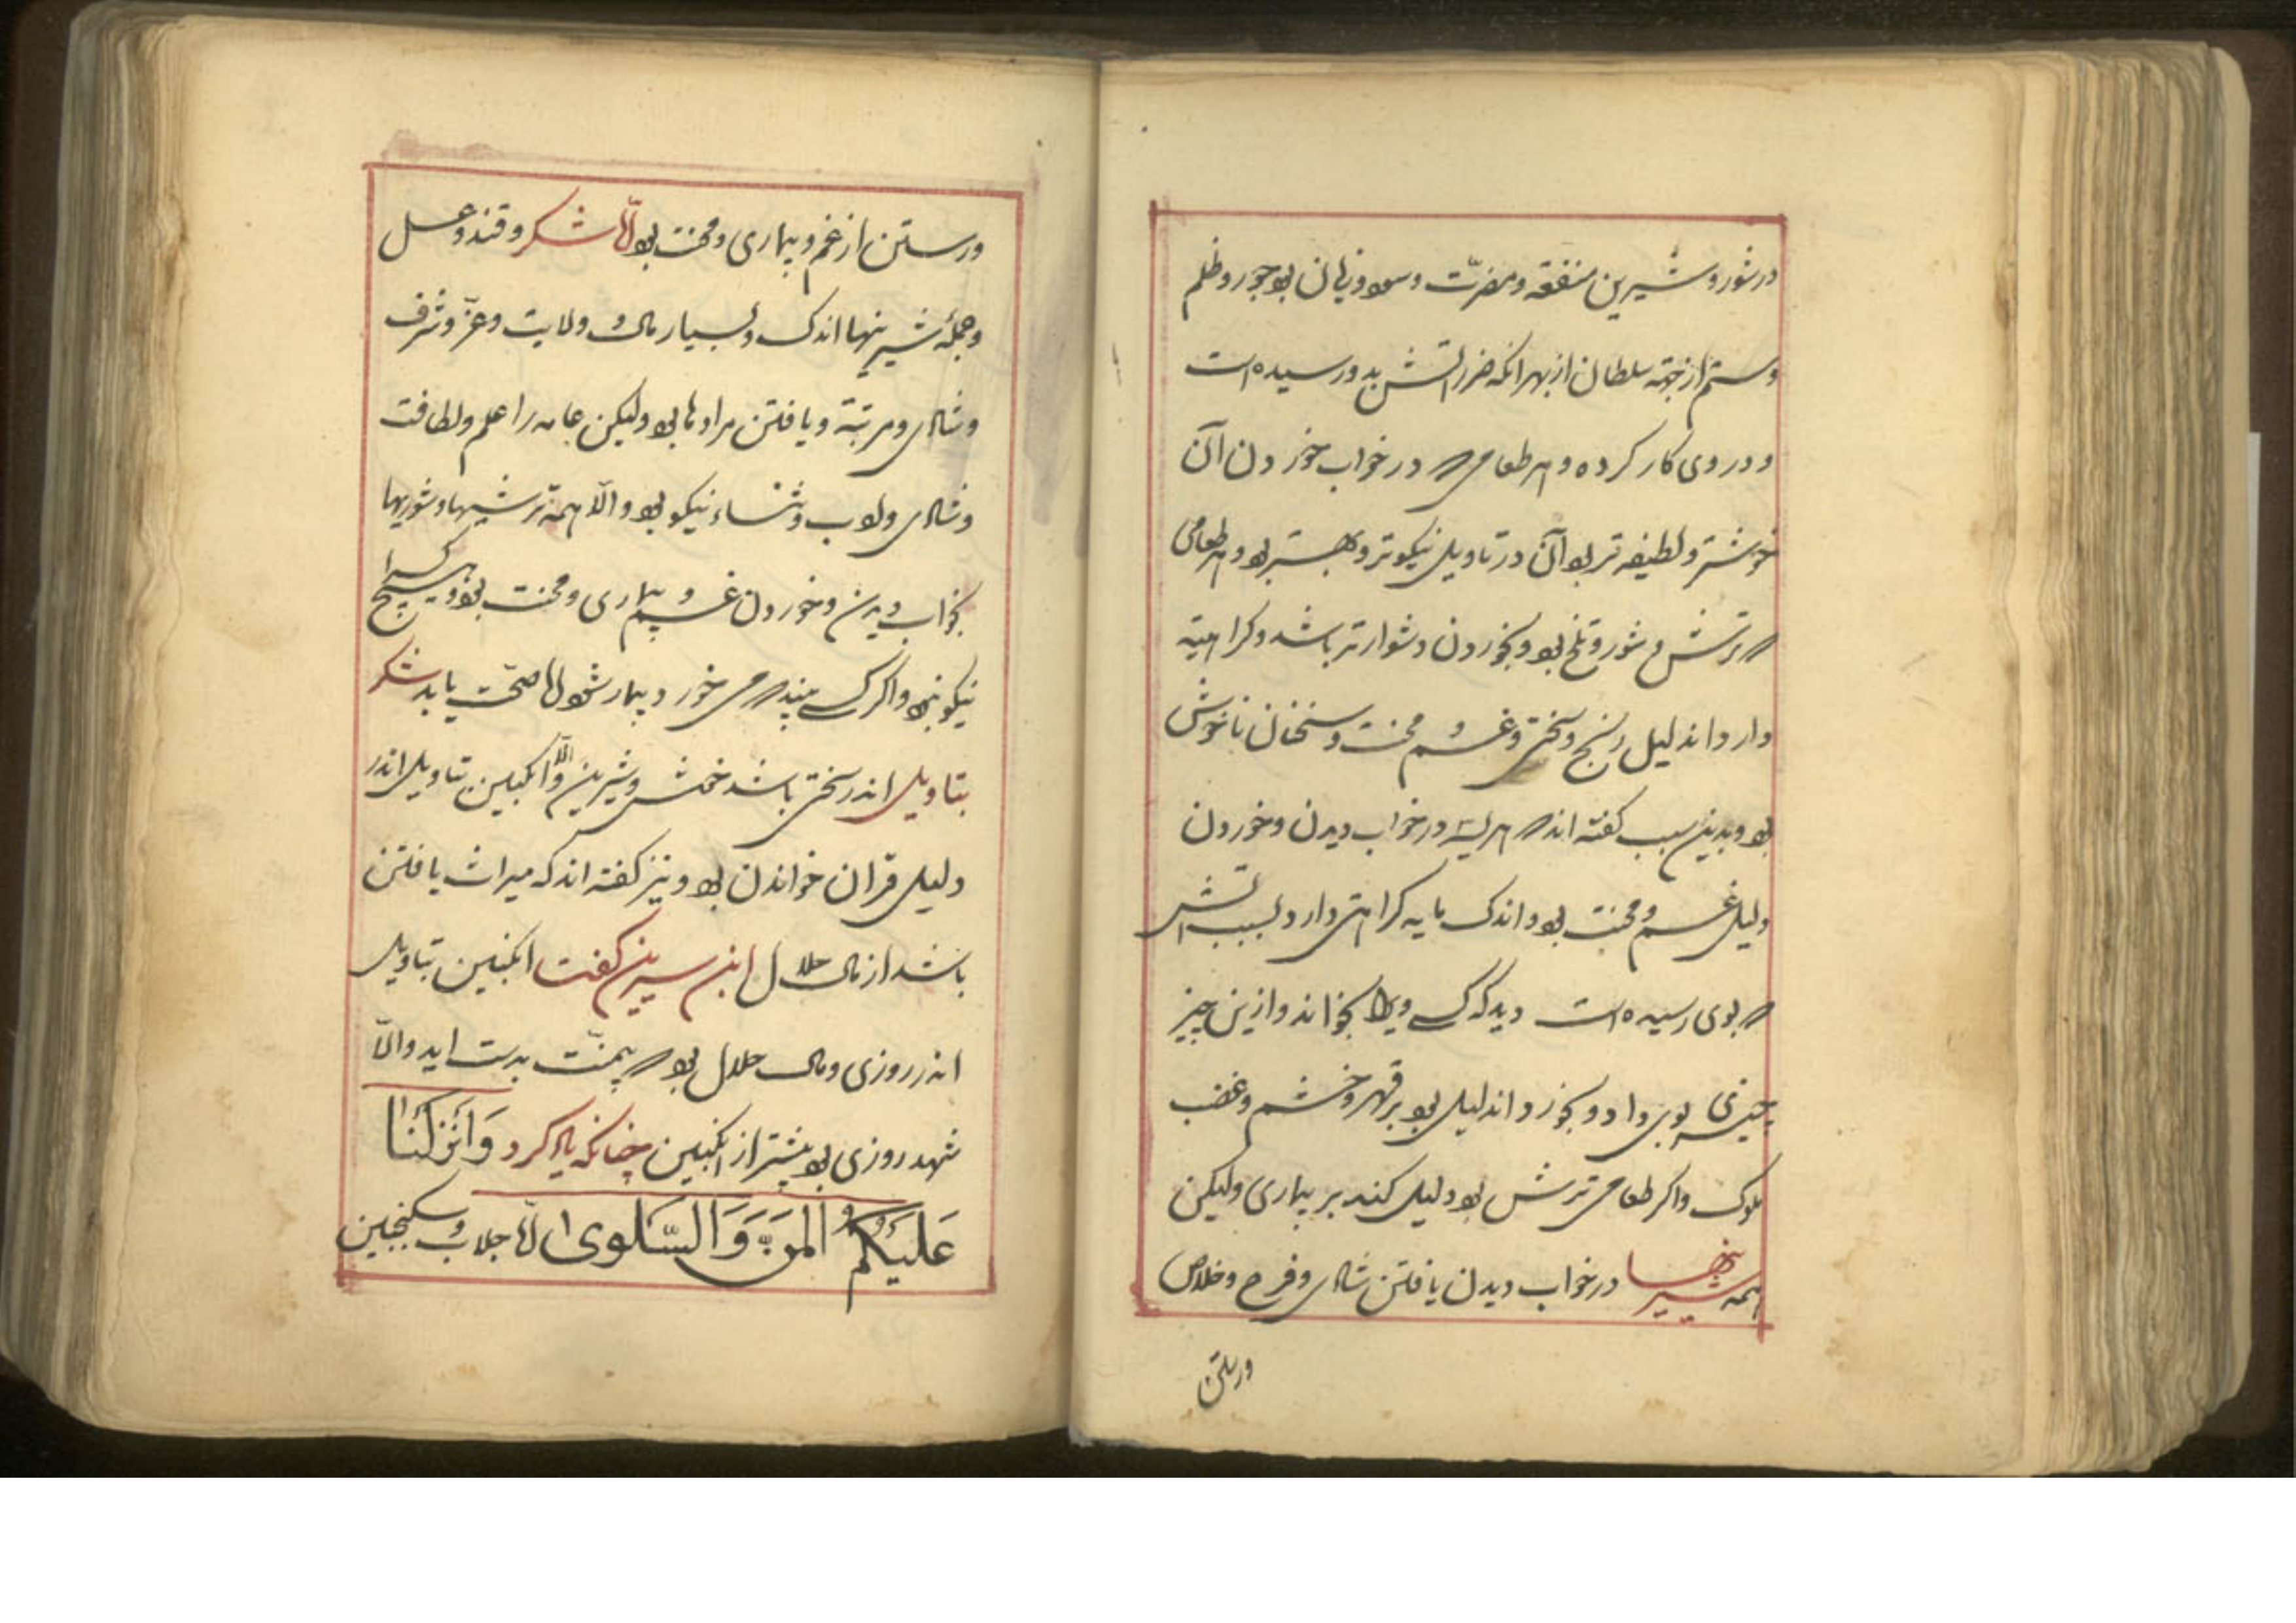 در شور و شیرین منفعة و مضرّت و سود و زیان بود جور و ظلم
و ستم از جهة سلطان از بهر انکه ضرر اتش بدو رسیده است
و در وی کار کرده و هر طعامی که در خواب خوردن آن
خوشتر و لطیف تر بود آن در تاویل نیکوتر و بهتر بود و هر طعامی
که ترش و شور و تلخ بود و بخوردن دشوارتر باشد و کراهیته
دارد اندلیل رنج و سختی و غم و محنت و سخنان ناخوش
بود و بدین سبب کفته اند که هریسه در خواب دیدن و خوردن
دلیل غم و محنت بود و اندک مایه کراهتی دارد بسبب اتش
که بوی رسیده است دید که کسی ویرا بخواند و ازین چیز
چیزی بوی داد و بخورد اندلیل بود بر قهر و خشم و غضب
ملوک و اکر طعامی ترش بود دلیل کند بر بیماری ولیکن
همه شیرینیها در خواب دیدن یافتن شادی و فرح و خلاص
ورستن
ورستن از غم و بیماری و محنت بود امّا شکر و قند و عسل
و جملهٔ شیرینیها اندک و بسیار مال و ولایت و عزّ و شرف
و شادی و مرتبة و یافتن مرادها بود ولیکن عامه را علم و لطافت
و شادی و ادب و ثناء نیکو بود و امّا همه ترشیها و شوریها
بخواب دیدن و خوردن غم و بیماری و محنت بود و هیچ کس را
نیکو نبود و اکر کسی بیند که می خورد بیمار شود امّا صحّت یابد شکر
بتاویل اندر سختی باشد خوش و شیرین و امّا انکبین بتاویل اندر
دلیل قران خواندن بود و نیز کفته اند که میراث یافتن
باشد از مال حلال ابن سیرین کفت انکبین بتاویل
اندر روزی و مال حلال بود که بیمنّت بدست اید و امّا
شهد روزی بود بیشتر از انکبین چنانکه یاد کرد وَاَنْزَلْنَا
عَلَیْکُمُ الْمَنَّ وَالسَّلْوٰی امّا جلاب و سکنجبین